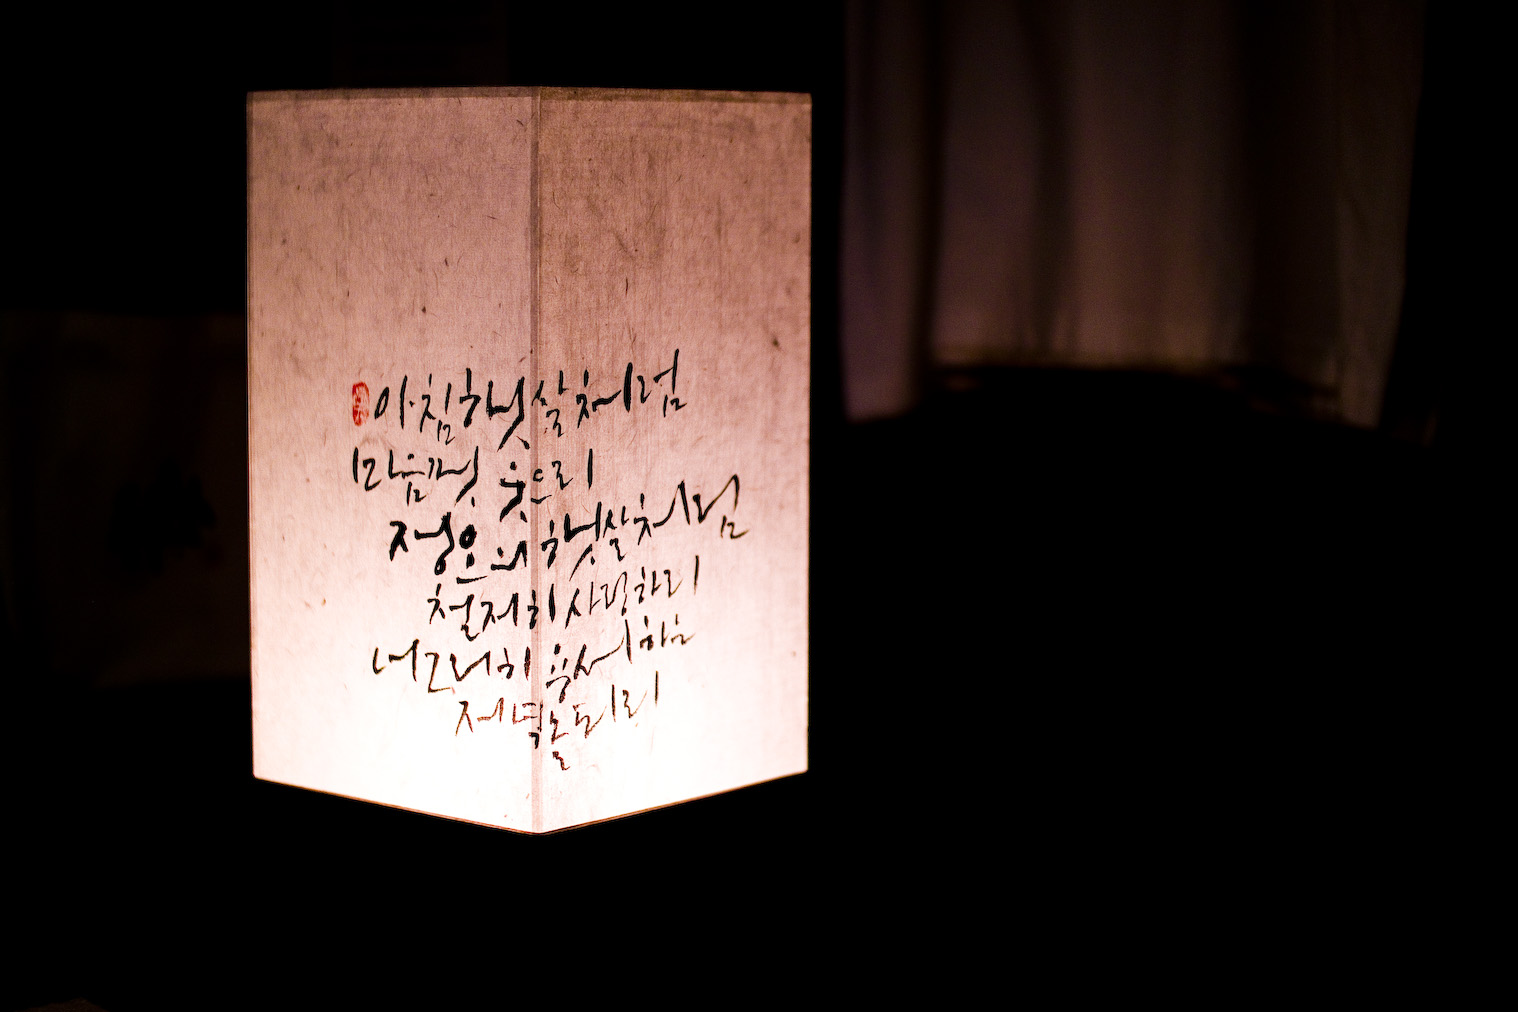 아침햇살처럼
마음껏 웃으리
정오의 햇살처럼
철저히 사랑하리
너그러히 용서하는
저녁놀 되리